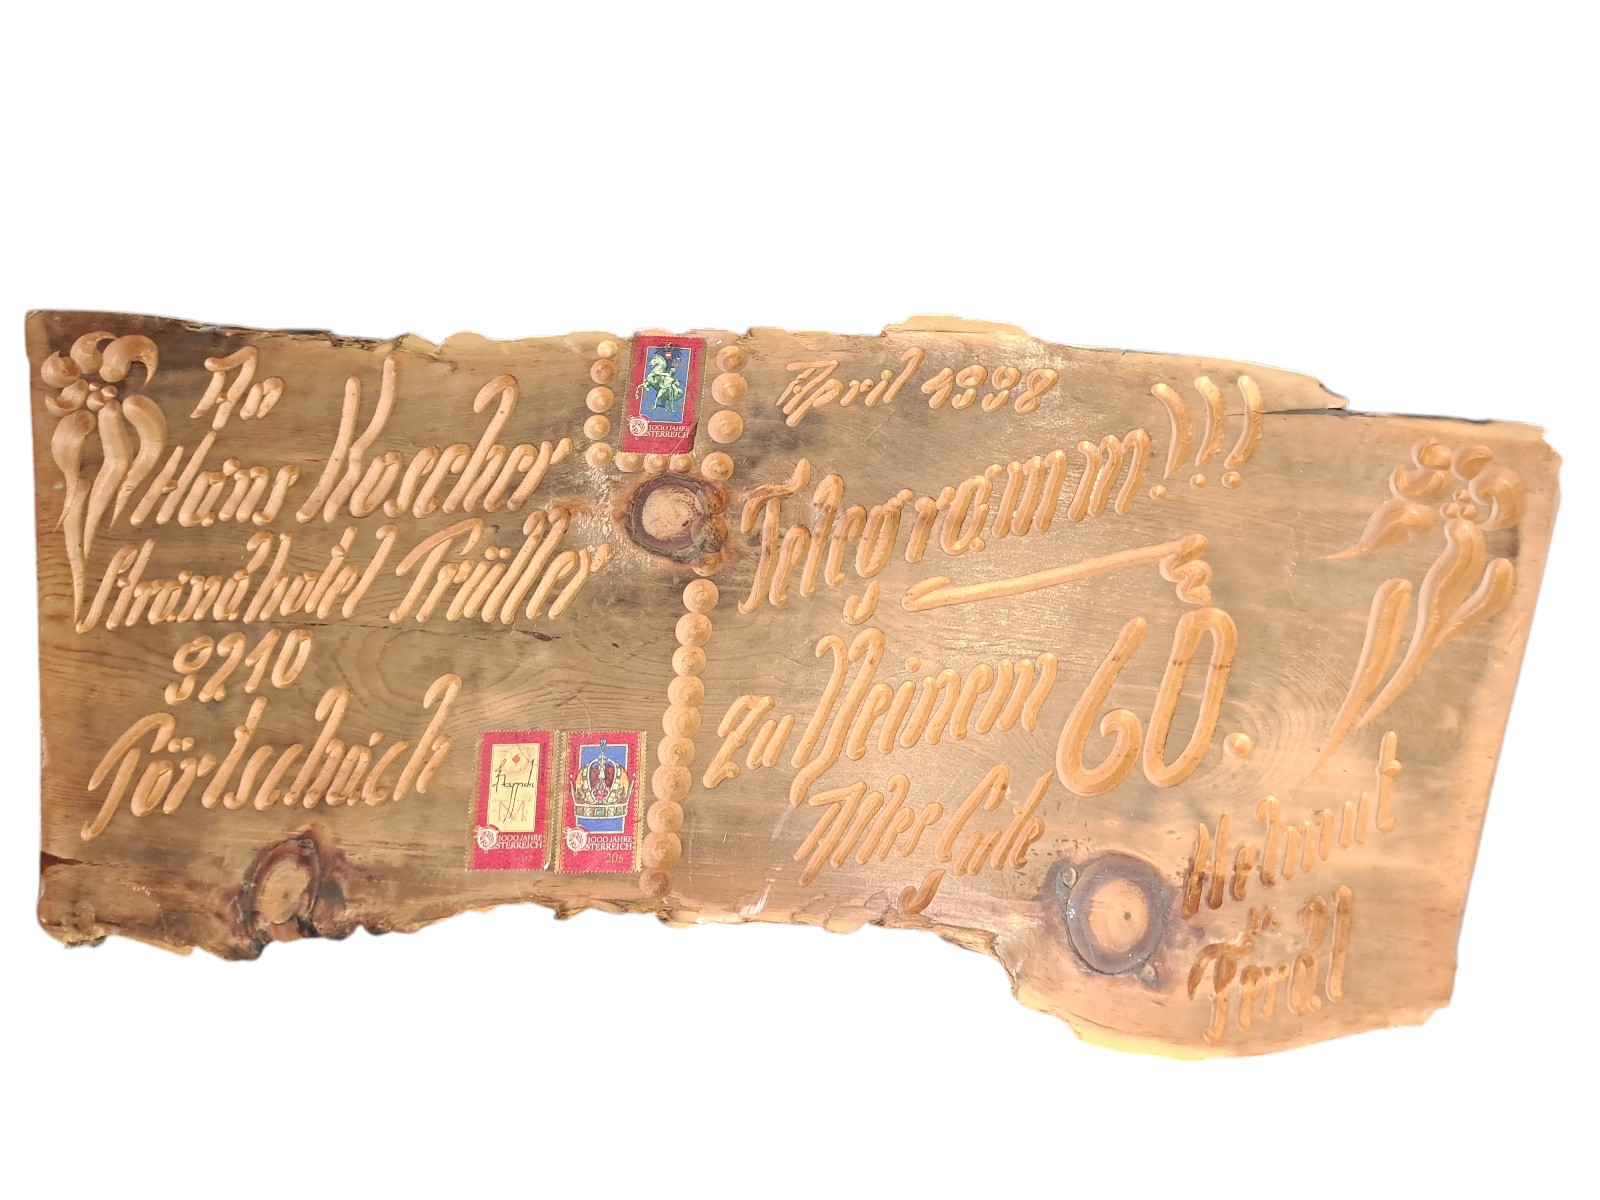 An
Hans Koscher
Strandhotel Prüller
9210
Pörtschach
April 1998
Telegramm!!!
Zu Deinem 60.
Alles Gute
Helmut
u.
1000 JAHRE
ÖSTERREICH
1000 JAHRE
ÖSTERREICH
1000 JAHRE
ÖSTERREICH
20s